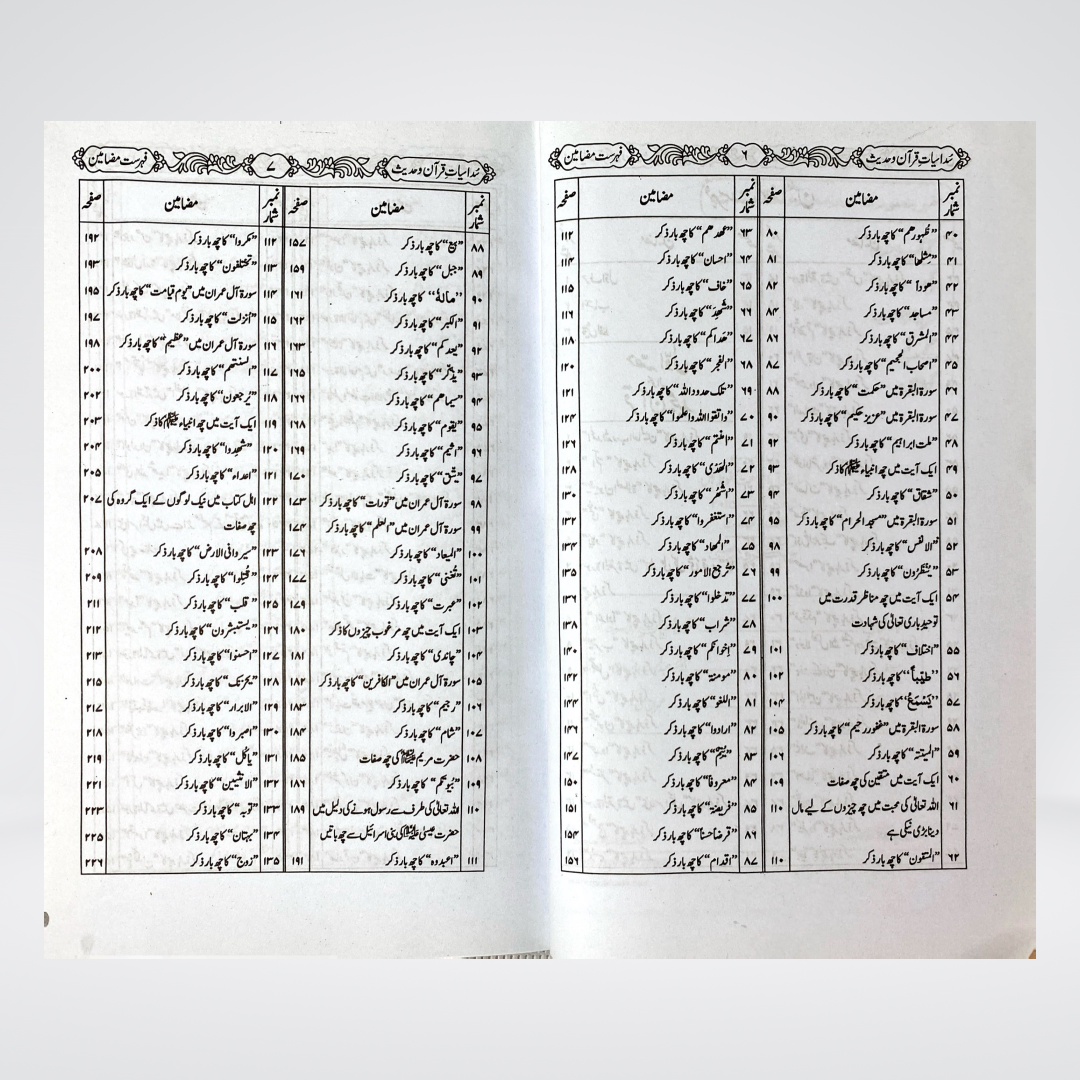 سُداسیاتِ قرآن و حدیث ۶ فہرست مضامین
نمبر شمار مضامین صفحہ نمبر شمار مضامین صفحہ
۴۰ ”ظُہورھم“ کا چھ بار ذکر ۸۰
۴۱ ”مِثلھا“ کا چھ بار ذکر ۸۱
۴۲ ”ھوداً“ کا چھ بار ذکر ۸۲
۴۳ ”مساجد“ کا چھ بار ذکر ۸۴
۴۴ ”المشرق“ کا چھ بار ذکر ۸۶
۴۵ ”اصحاب الجحیم“ کا چھ بار ذکر ۸۷
۴۶ سورۃ البقرۃ میں ”حکمت“ کا چھ بار ذکر ۸۸
۴۷ سورۃ البقرۃ میں ”عزیز حکیم“ کا چھ بار ذکر ۹۰
۴۸ ”ملت ابراہیم“ کا چھ بار ذکر ۹۲
۴۹ ایک آیت میں چھ انبیاء کا ذکر ۹۳
۵۰ ”شقاق“ کا چھ بار ذکر ۹۴
۵۱ سورۃ البقرۃ میں ”مسجد الحرام“ کا چھ بار ذکر ۹۵
۵۲ ”الانفس“ کا چھ بار ذکر ۹۸
۵۳ ”یُنْظَرُون“ کا چھ بار ذکر ۹۹
۵۴ ایک آیت میں چھ مناظر قدرت میں ۱۰۰
توحید باری تعالیٰ کی شہادت
۵۵ ”اختلاف“ کا چھ بار ذکر ۱۰۱
۵۶ ”طیّباً“ کا چھ بار ذکر ۱۰۲
۵۷ ”یَسْمَعُ“ کا چھ بار ذکر ۱۰۴
۵۸ سورۃ البقرۃ میں ”غفور رحیم“ کا چھ بار ذکر ۱۰۵
۵۹ ”المیتۃ“ کا چھ بار ذکر ۱۰۶
۶۰ ایک آیت میں متقین کی چھ صفات ۱۰۹
۶۱ اللہ تعالیٰ کی محبت میں چھ چیزوں کے لیے مال ۱۱۰
دینا بڑی نیکی ہے
۶۲ ”المتقون“ کا چھ بار ذکر ۱۱۰
۶۳ ”عھدھم“ کا چھ بار ذکر ۱۱۲
۶۴ ”احسان“ کا چھ بار ذکر ۱۱۴
۶۵ ”خاف“ کا چھ بار ذکر ۱۱۵
۶۶ ”شَھِدَ“ کا چھ بار ذکر ۱۱۶
۶۷ ”ھداکم“ کا چھ بار ذکر ۱۱۸
۶۸ ”الفجر“ کا چھ بار ذکر ۱۲۰
۶۹ ”تلک حدود اللہ“ کا چھ بار ذکر ۱۲۱
۷۰ ”واتقوا اللہ واعلموا“ کا چھ بار ذکر ۱۲۴
۷۱ ”امنتم“ کا چھ بار ذکر ۱۲۶
۷۲ ”الھَدْی“ کا چھ بار ذکر ۱۲۸
۷۳ ”اشھُر“ کا چھ بار ذکر ۱۳۰
۷۴ ”استغفروا“ کا چھ بار ذکر ۱۳۲
۷۵ ”المھاد“ کا چھ بار ذکر ۱۳۴
۷۶ ”تُرجع الامور“ کا چھ بار ذکر ۱۳۵
۷۷ ”تدخلوا“ کا چھ بار ذکر ۱۳۶
۷۸ ”شراب“ کا چھ بار ذکر ۱۳۸
۷۹ ”اِخوانکم“ کا چھ بار ذکر ۱۴۰
۸۰ ”مومنۃ“ کا چھ بار ذکر ۱۴۲
۸۱ ”اللغو“ کا چھ بار ذکر ۱۴۴
۸۲ ”ارادوا“ کا چھ بار ذکر ۱۴۶
۸۳ کا چھ بار ذکر ۱۴۷
۸۴ ”معروفاً“ کا چھ بار ذکر ۱۵۰
۸۵ ”فریضۃ“ کا چھ بار ذکر ۱۵۱
۸۶ ”قرضاً حسناً“ کا چھ بار ذکر ۱۵۴
۸۷ ”اقدام“ کا چھ بار ذکر ۱۵۶
سُداسیاتِ قرآن و حدیث ۷ فہرست مضامین
نمبر شمار مضامین صفحہ نمبر شمار مضامین صفحہ
۸۸ ”بیع“ کا چھ بار ذکر ۱۵۷
۸۹ ”جبل“ کا چھ بار ذکر ۱۵۹
۹۰ ”مالہٗ“ کا چھ بار ذکر ۱۶۱
۹۱ ”الکبر“ کا چھ بار ذکر ۱۶۲
۹۲ ”یعدکم“ کا چھ بار ذکر ۱۶۳
۹۳ ”یذّکّر“ کا چھ بار ذکر ۱۶۵
۹۴ ”سیماھم“ کا چھ بار ذکر ۱۶۶
۹۵ ”یقوم“ کا چھ بار ذکر ۱۶۸
۹۶ ”اثیم“ کا چھ بار ذکر ۱۶۹
۹۷ ”یتّق“ کا چھ بار ذکر ۱۷۰
۹۸ سورۃ آل عمران میں ”تورات“ کا چھ بار ذکر ۱۷۳
۹۹ سورۃ آل عمران میں ”العلم“ کا چھ بار ذکر ۱۷۴
۱۰۰ ”المیعاد“ کا چھ بار ذکر ۱۷۶
۱۰۱ ”تُغنی“ کا چھ بار ذکر ۱۷۷
۱۰۲ ”عبرت“ کا چھ بار ذکر ۱۷۹
۱۰۳ ایک آیت میں چھ مرغوب چیزوں کا ذکر ۱۸۰
۱۰۴ ”چاندی“ کا چھ بار ذکر ۱۸۱
۱۰۵ سورۃ آل عمران میں ”الکافرین“ کا چھ بار ذکر ۱۸۲
۱۰۶ ”رجیم“ کا چھ بار ذکر ۱۸۳
۱۰۷ ”شام“ کا چھ بار ذکر ۱۸۴
۱۰۸ حضرت مریم کی چھ صفات ۱۸۵
۱۰۹ ”بیوتکم“ کا چھ بار ذکر ۱۸۶
۱۱۰ اللہ تعالیٰ کی طرف سے رسول ہونے کی دلیل میں ۱۸۹
حضرت عیسیٰ کی بنی اسرائیل سے چھ باتیں
۱۱۱ ”اعبدوہ“ کا چھ بار ذکر ۱۹۱
۱۱۲ ”مکروا“ کا چھ بار ذکر ۱۹۲
۱۱۳ ”تختلفون“ کا چھ بار ذکر ۱۹۳
۱۱۴ سورۃ آل عمران میں ”یوم قیامت“ کا چھ بار ذکر ۱۹۵
۱۱۵ ”اُنزلت“ کا چھ بار ذکر ۱۹۷
۱۱۶ سورۃ آل عمران میں ”عظیم“ کا چھ بار ذکر ۱۹۸
۱۱۷ ”السنتھم“ کا چھ بار ذکر ۲۰۰
۱۱۸ ”یُرجعون“ کا چھ بار ذکر ۲۰۲
۱۱۹ ایک آیت میں چھ انبیاء کا ذکر ۲۰۳
۱۲۰ ”شھدوا“ کا چھ بار ذکر ۲۰۴
۱۲۱ ”اعداء“ کا چھ بار ذکر ۲۰۵
۱۲۲ اہل کتاب میں نیک لوگوں کے ایک گروہ کی ۲۰۷
چھ صفات
۱۲۳ ”سیروا فی الارض“ کا چھ بار ذکر ۲۰۸
۱۲۴ ”قُتِلوا“ کا چھ بار ذکر ۲۰۹
۱۲۵ ”قلب“ کا چھ بار ذکر ۲۱۱
۱۲۶ ”یستبشرون“ کا چھ بار ذکر ۲۱۲
۱۲۷ ”احسنوا“ کا چھ بار ذکر ۲۱۳
۱۲۸ ”یحزنک“ کا چھ بار ذکر ۲۱۵
۱۲۹ ”الابرار“ کا چھ بار ذکر ۲۱۷
۱۳۰ ”اصبروا“ کا چھ بار ذکر ۲۱۸
۱۳۱ ”یاکل“ کا چھ بار ذکر ۲۱۹
۱۳۲ ”الانثیین“ کا چھ بار ذکر ۲۲۱
۱۳۳ ”توبہ“ کا چھ بار ذکر ۲۲۳
۱۳۴ ”بہتان“ کا چھ بار ذکر ۲۲۵
۱۳۵ ”زوج“ کا چھ بار ذکر ۲۲۶